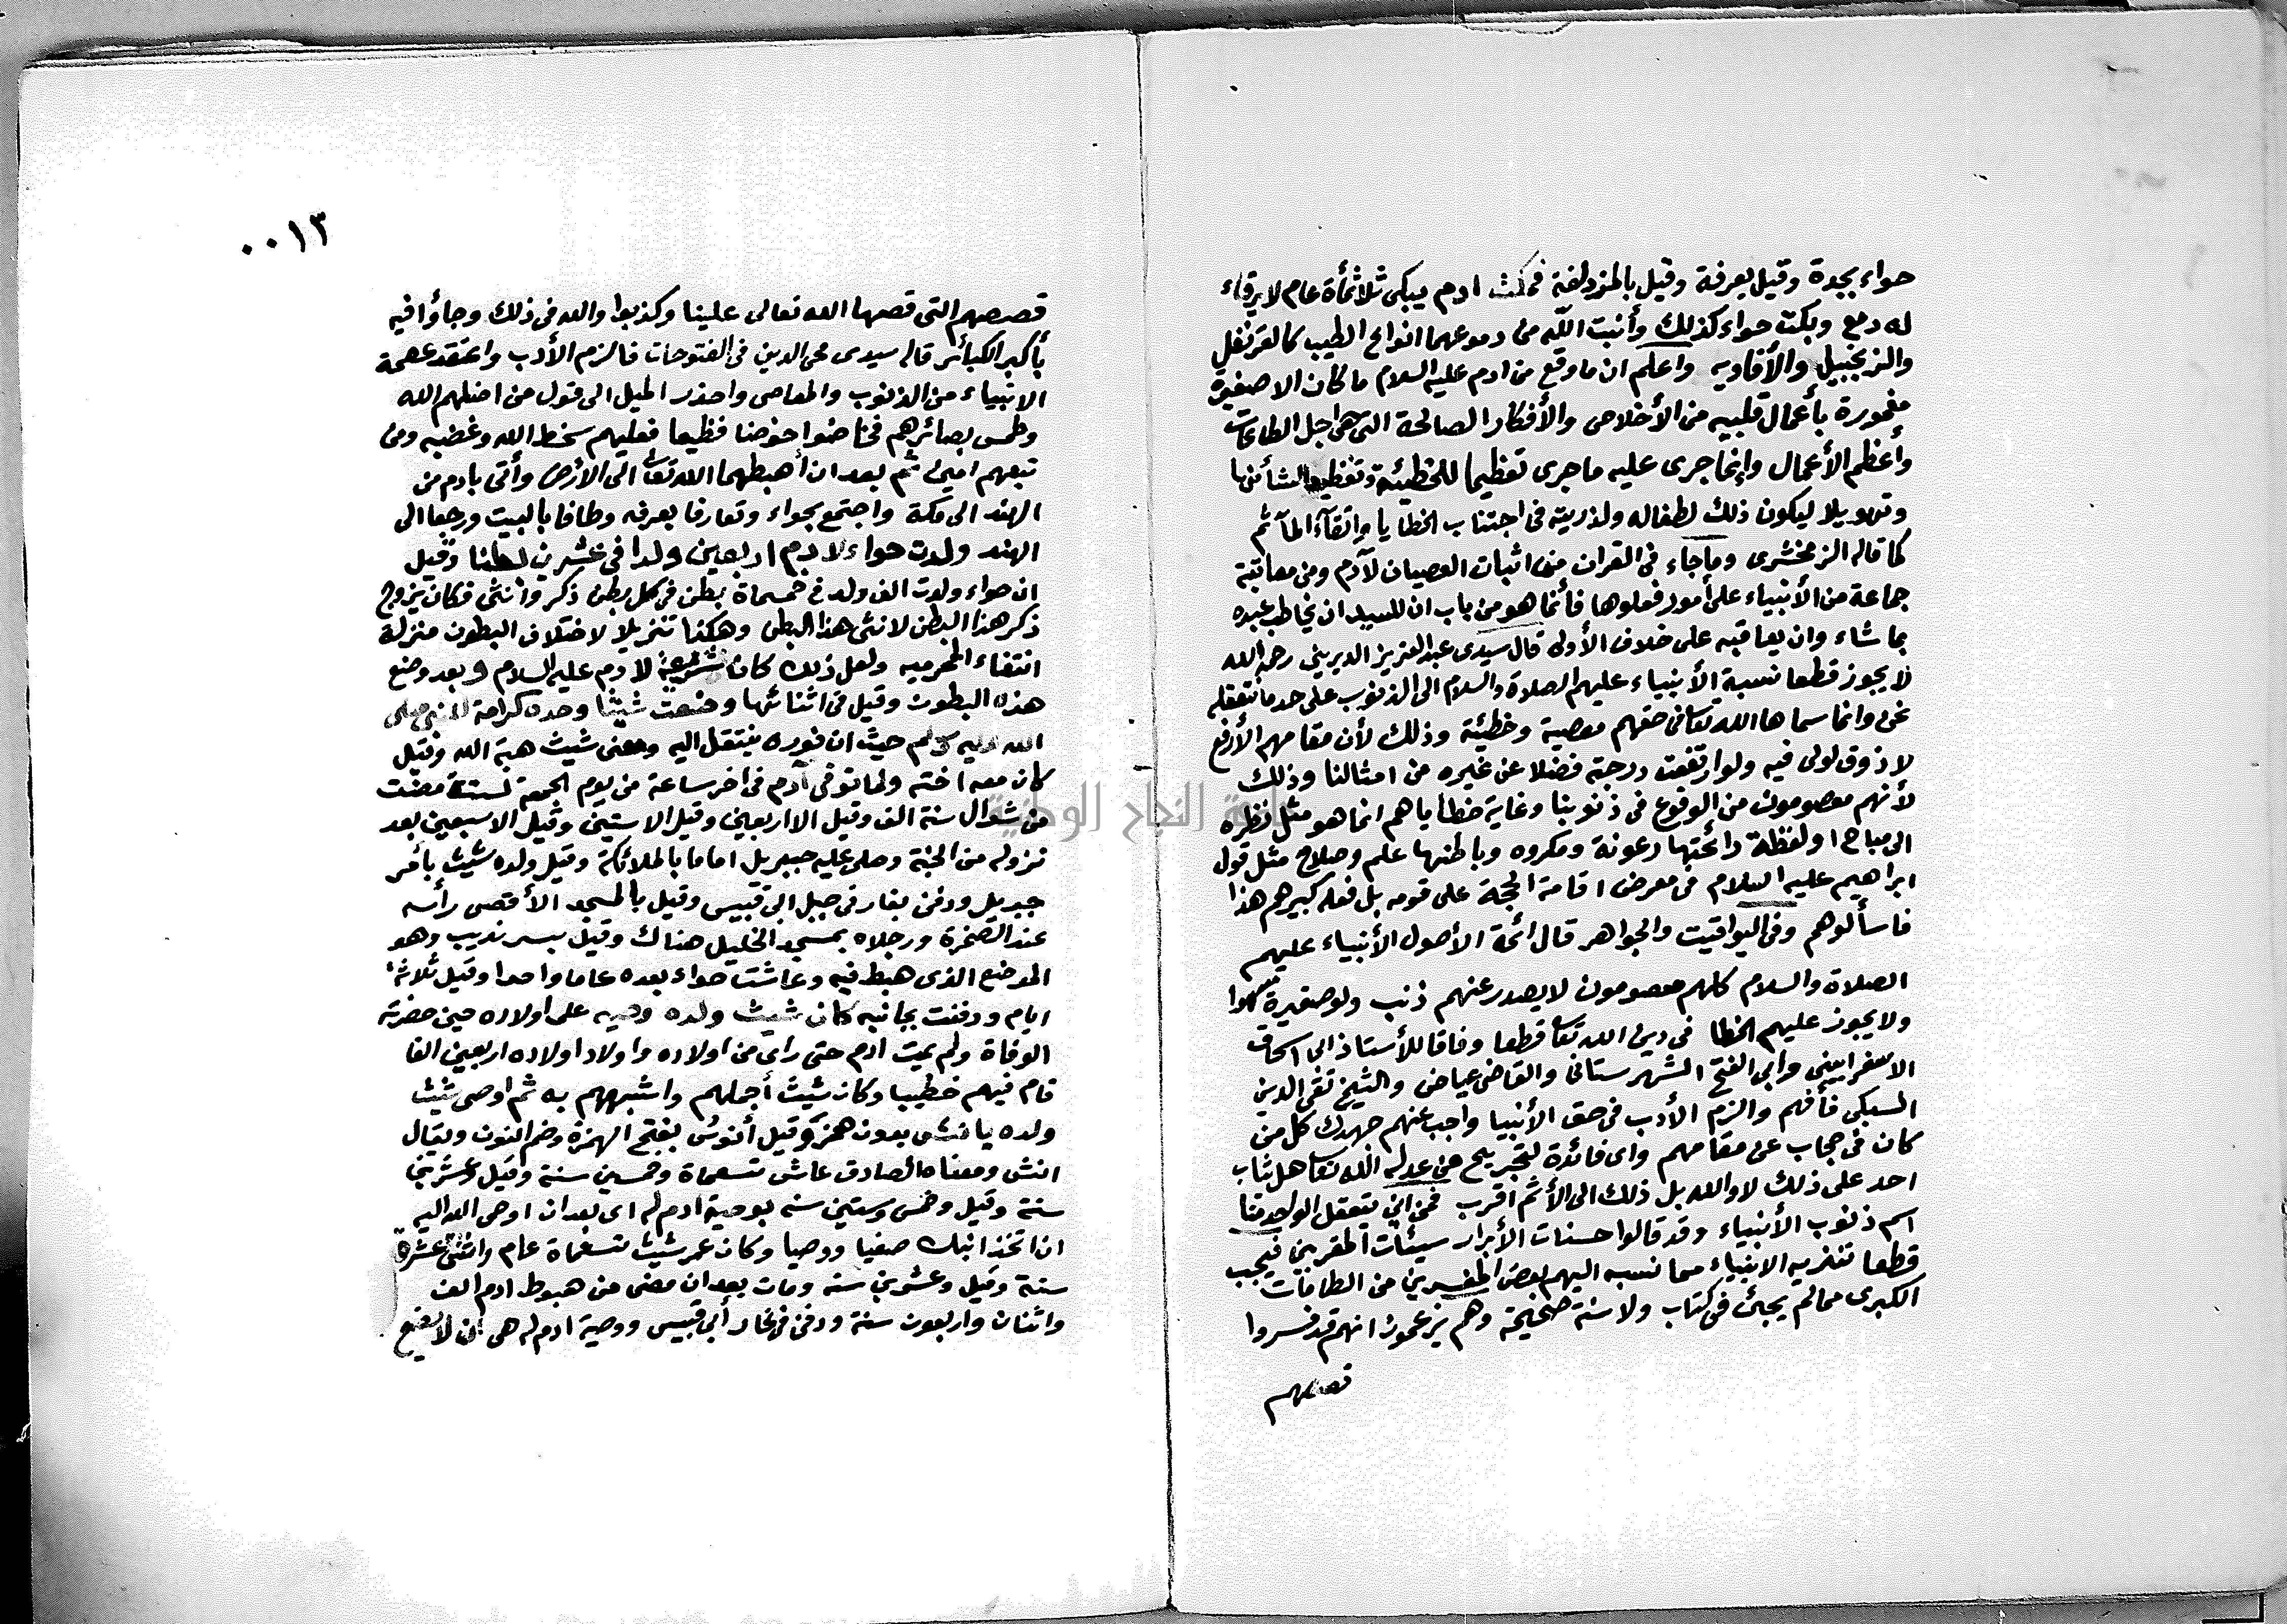 حواء بجدة وقيل بعرفة وقيل بالمزدلفة فمكث ادم يبكى ثلاثمأة عام لا يرقاء
له دمع وبكت حواء كذلك وأنبت اللّه من دموعهما انواع الطيب كالقرنفل
والزنجبيل والأفاويه واعلم ان ما وقع من ادم عليه السلام ما كان الا صغيرة
مغمورة بأعمال قلبيه من الأخلاص والأفكار الصالحة التى هى اجل الطاعات
وأعظم الأعمال وإنما جرى عليه ما جرى تعظيما للخطيئة وتفظيعا لشأنها
وتهويلا ليكون ذلك لطفاله ولذريته فى اجتناب الخطايا واتقآء المآثم
كما قاله الزمخشرى وما جاء فى القران من اثبات العصيان لآدم ومن معاتبة
جماعة من الأنبياء على أمور فعلوها فأنما هو من باب ان للسيد ان يخاطب عبده
بما شاء وان يعاقبه على خلاف الأولى قال سيدى عبد العزيز الديرينى رحمه الله
لا يجوز قطعا نسبة الأنبياء عليهم الصلاة والسلام الى الذنوب على حد ما نتعقله
نحن وانما سماها الله تعا فى حقهم معصية وخطيئة وذلك لأن مقامهم الأرفع
لا ذوق لولى فيه ولو ارتفعت درجته فضلا عن غيره من امثالنا وذلك
لأنهم معصومون من الوقوع فى ذنوبنا وغاية خطاياهم انما هو مثل نظره
الى مباح او لفظة رائحتها رعونة ومكروه وباطنها علم وصلاح مثل قول
ابراهيم عليه السلام فى معرض اقامة الحجة على قومه بل فعله كبيرهم هذا
فاسألوهم وفى اليواقيت والجواهر قال ائمة الأصول الأنبياء عليهم
الصلاة والسلام كلهم معصومون لا يصدر عنهم ذنب ولو صغيرة سهوا
ولا يجوز عليهم الخطا فى دين الله تعا قطعا وفاقا للأستاذ ابى اسحاق
الاسفراينى وابى الفتح الشهرستانى والقاضى عياض والشيخ تقى الدين
السبكى فأفهم والزم الأدب فى حق الأنبيا واجب عنهم جهدك كل من
كان فى حجاب عن مقامهم واى فائدة لتجريح من عدله الله تعا هل يثاب
احد على ذلك لا والله بل ذلك الى الأثم اقرب فمن اين يتعقل الواحد منا
اسم ذنوب الأنبياء وقد قالوا حسنات الأبرار سيئات المقربين فيجب
قطعا تنزيه الانبياء مما نسبه اليهم بعض المفسرين من الطامات
الكبرى مما لم يجئ فى كتاب ولا سنة صحيحة وهم يزعمون انهم قد فسروا
قصصهم
٠٠١٣
قصصهم التى قصها الله تعالى علينا وكذبوا والله فى ذلك وجاؤا فيه
بأكبر الكبائر قاله سيدى محى الدين فى الفتوحات فالزم الأدب واعتقد عصمة
الانبياء من الذنوب والمعاصى واحذر الميل الى قول من اضلهم الله
وطمس بصائرهم فخاضوا خوضا فظيعا فعليهم سخط الله وغضبه ومن
تبعهم امين ثم بعد ان أهبطهما الله تعا الى الأرض وأتى بادم من
الهند الى مكة واجتمع بحواء وتعارفا بعرفه وطافا بالبيت ورجعا الى
الهند ولدت حواء لادم اربعين ولدا فى عشرين بطنا وقيل
ان حواء ولدت الف ولد فى خمسماة بطن فى كل بطن ذكر وأنثى فكان يزوج
ذكر هذا البطن لانثى هذا البطن وهكذا تنزيلا لاختلاف البطون منزلة
انتفاء المحرميه ولعل ذلك كان شرعة لادم عليه السلام وبعد وضع
هذه البطون وقيل فى اثنائها وضعت شيثا وحده كرامة للنبى صلى
الله عليه وسلم حيث ان نوره ينتقل اليه ومعنى شيث هبة الله وقيل
كان معه اخته ولما توفى آدم فى اخر ساعة من يوم الجمعة لستة مضت
من شوال سنة الف وقيل الا اربعين وقيل الا ستين وقيل الا سبعين بعد
نزوله من الجنة وصلى عليه جبريل اماما بالملائكة وقيل ولده شيث بأمر
جبريل ودفن بغار فى جبل ابى قبيس وقيل بالمسجد الأقصى رأسه
عند الصخرة ورجلاه بمسجد الخليل هناك وقيل بسرنديب وهو
الموضع الذى هبط فيه وعاشت حواء بعده عاما واحدا وقيل ثلاثة
ايام ودفنت بجانبه كان شيث ولده وصيه على اولاده حين حضرته
الوفاة ولم يمت ادم حتى راى من اولاده واولاد اولاده اربعين الفا
قام فيهم خطيبا وكان شيث أجملهم واشبههم به ثم اوصى شيث
ولده يانش بدون همز وقيل أنوش بفتح الهمزة وضم النون ويقال
انش ومعناه الصادق عاش تسعماة وخمسين سنة وقيل وعشرين
سنة وقيل وخمس وستين سنه بوصية ادم له اى بعد ان اوحى الله اليه
ان اتخذ ابنك صفيا ووصيا وكان عمر شيث تسعماة عام واثنى عشرة
سنة وقيل وعشرين سنه ومات بعد ان مضى من هبوط ادم الف
واثنان واربعون سنة ودفن فى غار أبى قبيس ووصية ادم له هى ان لا يضع
جامعة النجاح الوطنية